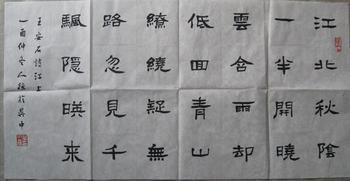 江北秋陰
一半開曉
雲含雨却
低回青山
繚繞疑無
路忽見千
颿隱暎来
王安石詩江上
酉仲冬 於吳中